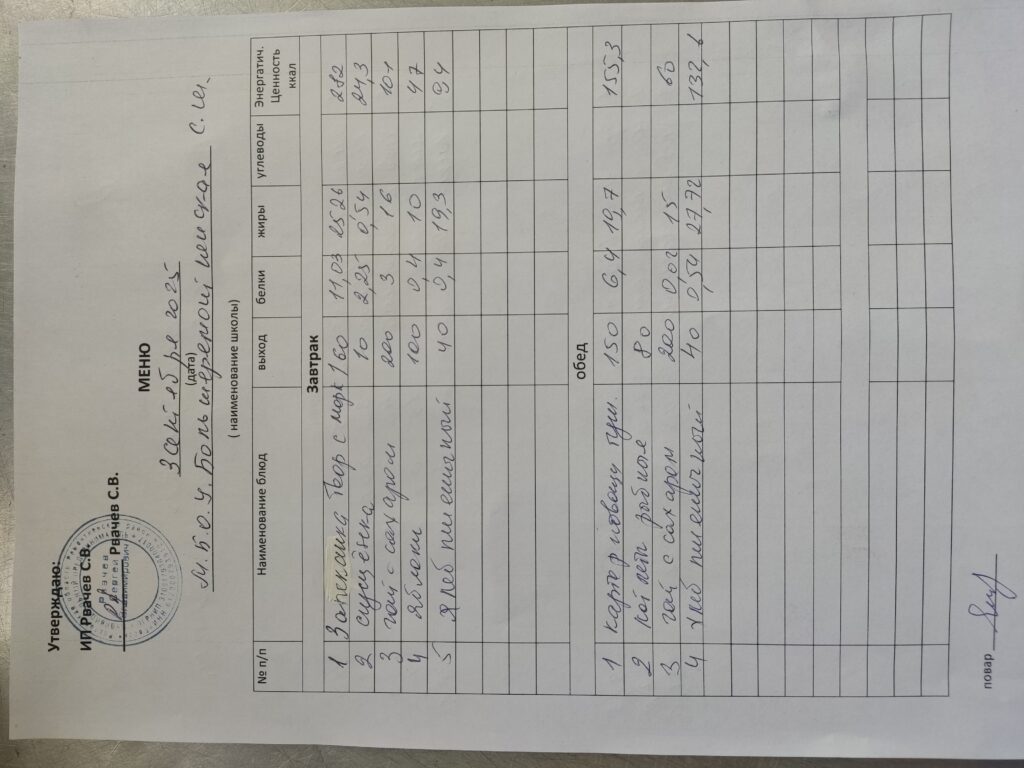 Утверждаю:
ИП Рвачев С.В.
Рвачев С.В.
МЕНЮ
3 сентября 2025
(дата)
М.Б.О.У. С.Ш.
( наименование школы)
№ п/п Наименование блюд выход белки жиры углеводы Энергатич. Ценность ккал
Завтрак
1 Запеканка Твор с морк 160 11,03 25,26 282
2 сгущёнка 10 2,25 0,54 24,3
3 чай с сахаром 200 3 16 101
4 Яблоки 100 0,4 10 47
5 Хлеб пшеничный 40 0,4 19,3 94
обед
1 картофель туш. 150 6,4 19,7 155,3
2 котлет рыбные 80
3 чай с сахаром 200 0,02 15 60
4 хлеб пшеничный 40 0,54 27,72 132,6
повар